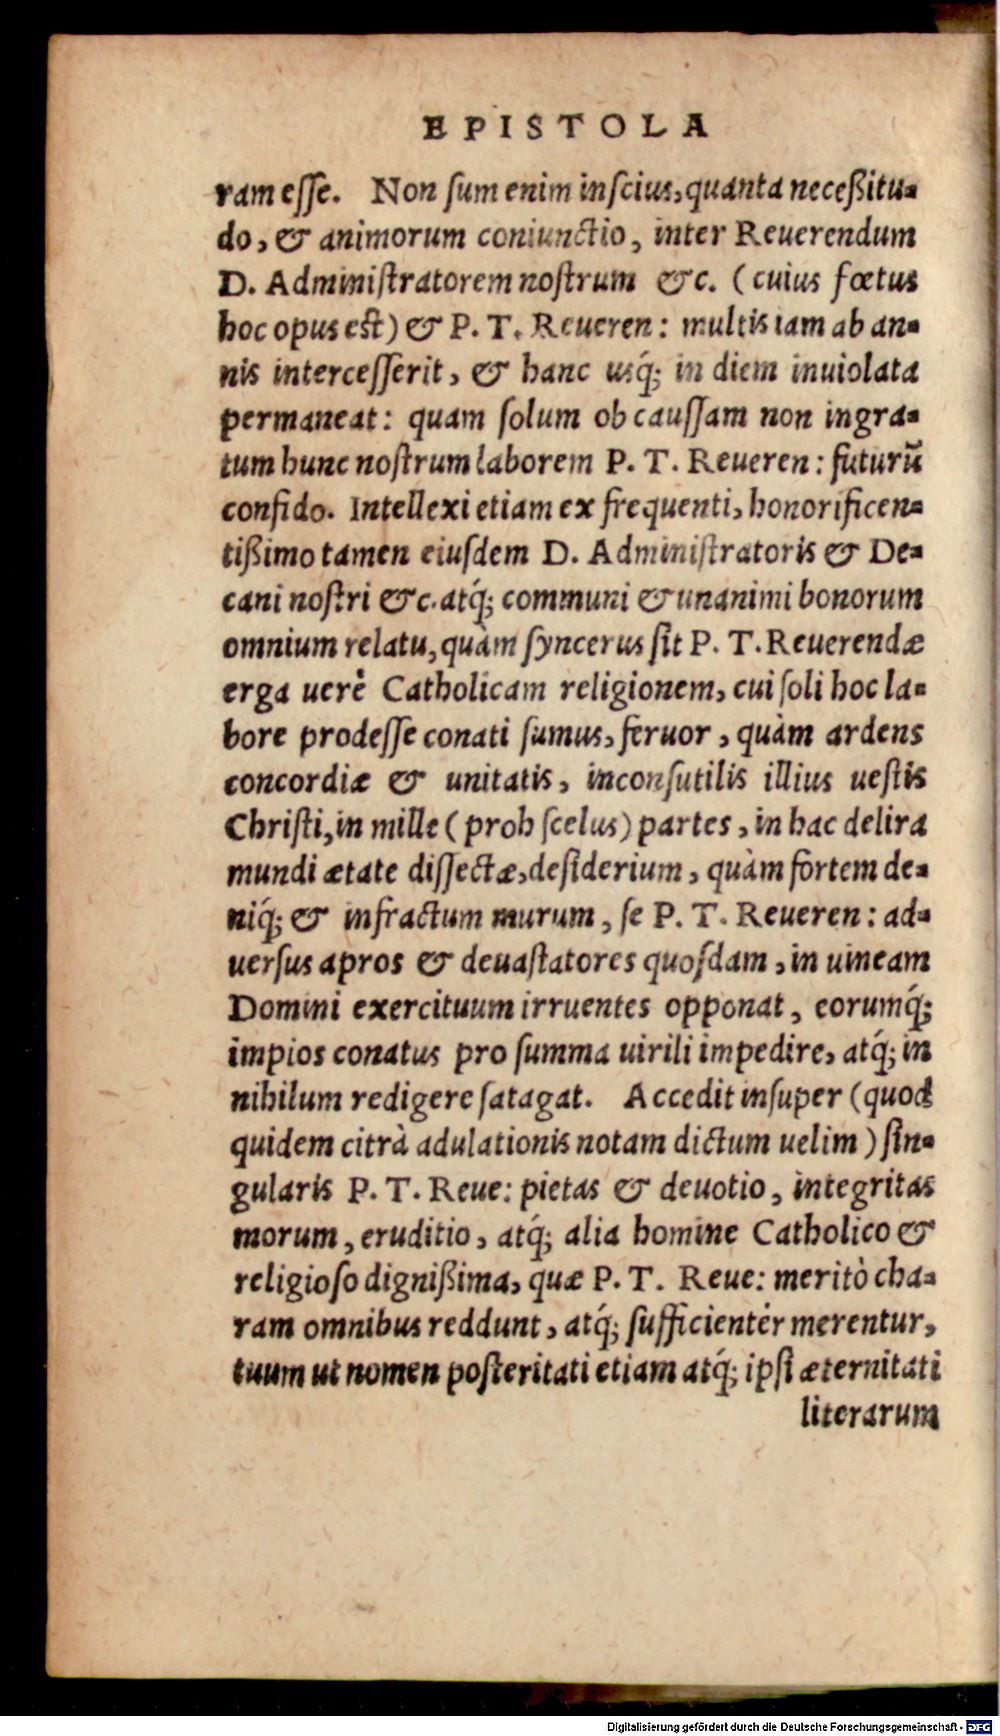 EPISTOLA
ram eſſe. Non ſum enim inſcius, quanta neceßitu-
do, & animorum coniunctio, inter Reuerendum
D. Adminiſtratorem noſtrum &c. (cuius fœtus
hoc opus eſt) & P. T. Reueren: multis iam ab an-
nis interceſſerit, & hanc uſq́; in diem inuiolata
permaneat: quam ſolum ob cauſſam non ingra-
tum hunc noſtrum laborem P. T. Reueren: futurũ
confido. Intellexi etiam ex frequenti, honorificen-
tißimo tamen eiuſdem D. Adminiſtratoris & De-
cani noſtri &c. atq́; communi & unanimi bonorum
omnium relatu, quàm ſyncerus ſit P. T. Reuerendæ
erga uerè Catholicam religionem, cui ſoli hoc la-
bore prodeſſe conati ſumus, feruor, quàm ardens
concordiæ & unitatis, inconſutilis illius ueſtis
Chriſti, in mille (proh ſcelus) partes, in hac delira
mundi ætate diſſectæ, deſiderium, quàm fortem de-
niq́; & infractum murum, ſe P. T. Reueren: ad-
uerſus apros & deuaſtatores quoſdam, in uineam
Domini exercituum irruentes opponat, eorumq́;
impios conatus pro ſumma uirili impedire, atq́; in
nihilum redigere ſatagat. Accedit inſuper (quod
quidem citrà adulationis notam dictum uelim) ſin-
gularis P. T. Reue: pietas & deuotio, integritas
morum, eruditio, atq́; alia homine Catholico &
religioſo dignißima, quæ P. T. Reue: meritò cha-
ram omnibus reddunt, atq́; ſufficientèr merentur,
tuum ut nomen poſteritati etiam atq́; ipſi æternitati
literarum
Digitalisierung gefördert durch die Deutsche Forschungsgemeinschaft - DFG